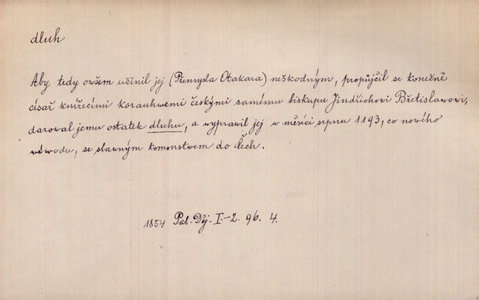 dluh
Aby tedy ovšem učinil jej (Přemysla Otakara) neškodným, propůjčil se konečně
císař knížecími korauhwemi českými samému biskupu Jindřichovi Břetislawovi,
darowal jemu ostatek dluhu, a wyprawil jej w měsíci srpnu 1193, co nového
wéwodu, se slawným komonstwem do Čech.
1854 Pal. Děj. I-2. 96. 4.